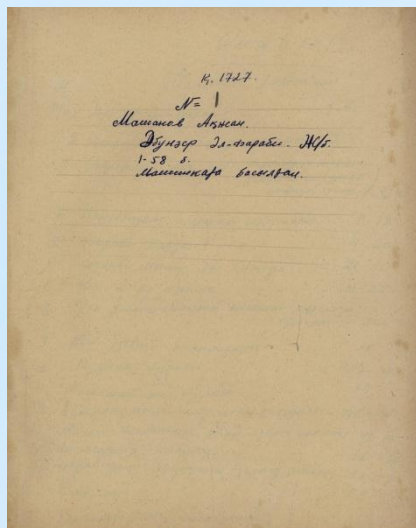 К. 1727.
№ 1
Машанов Ақжан.
Әбунәср Әл-Фараби. Ж/б.
1-58 б.
Машинкада басылған.